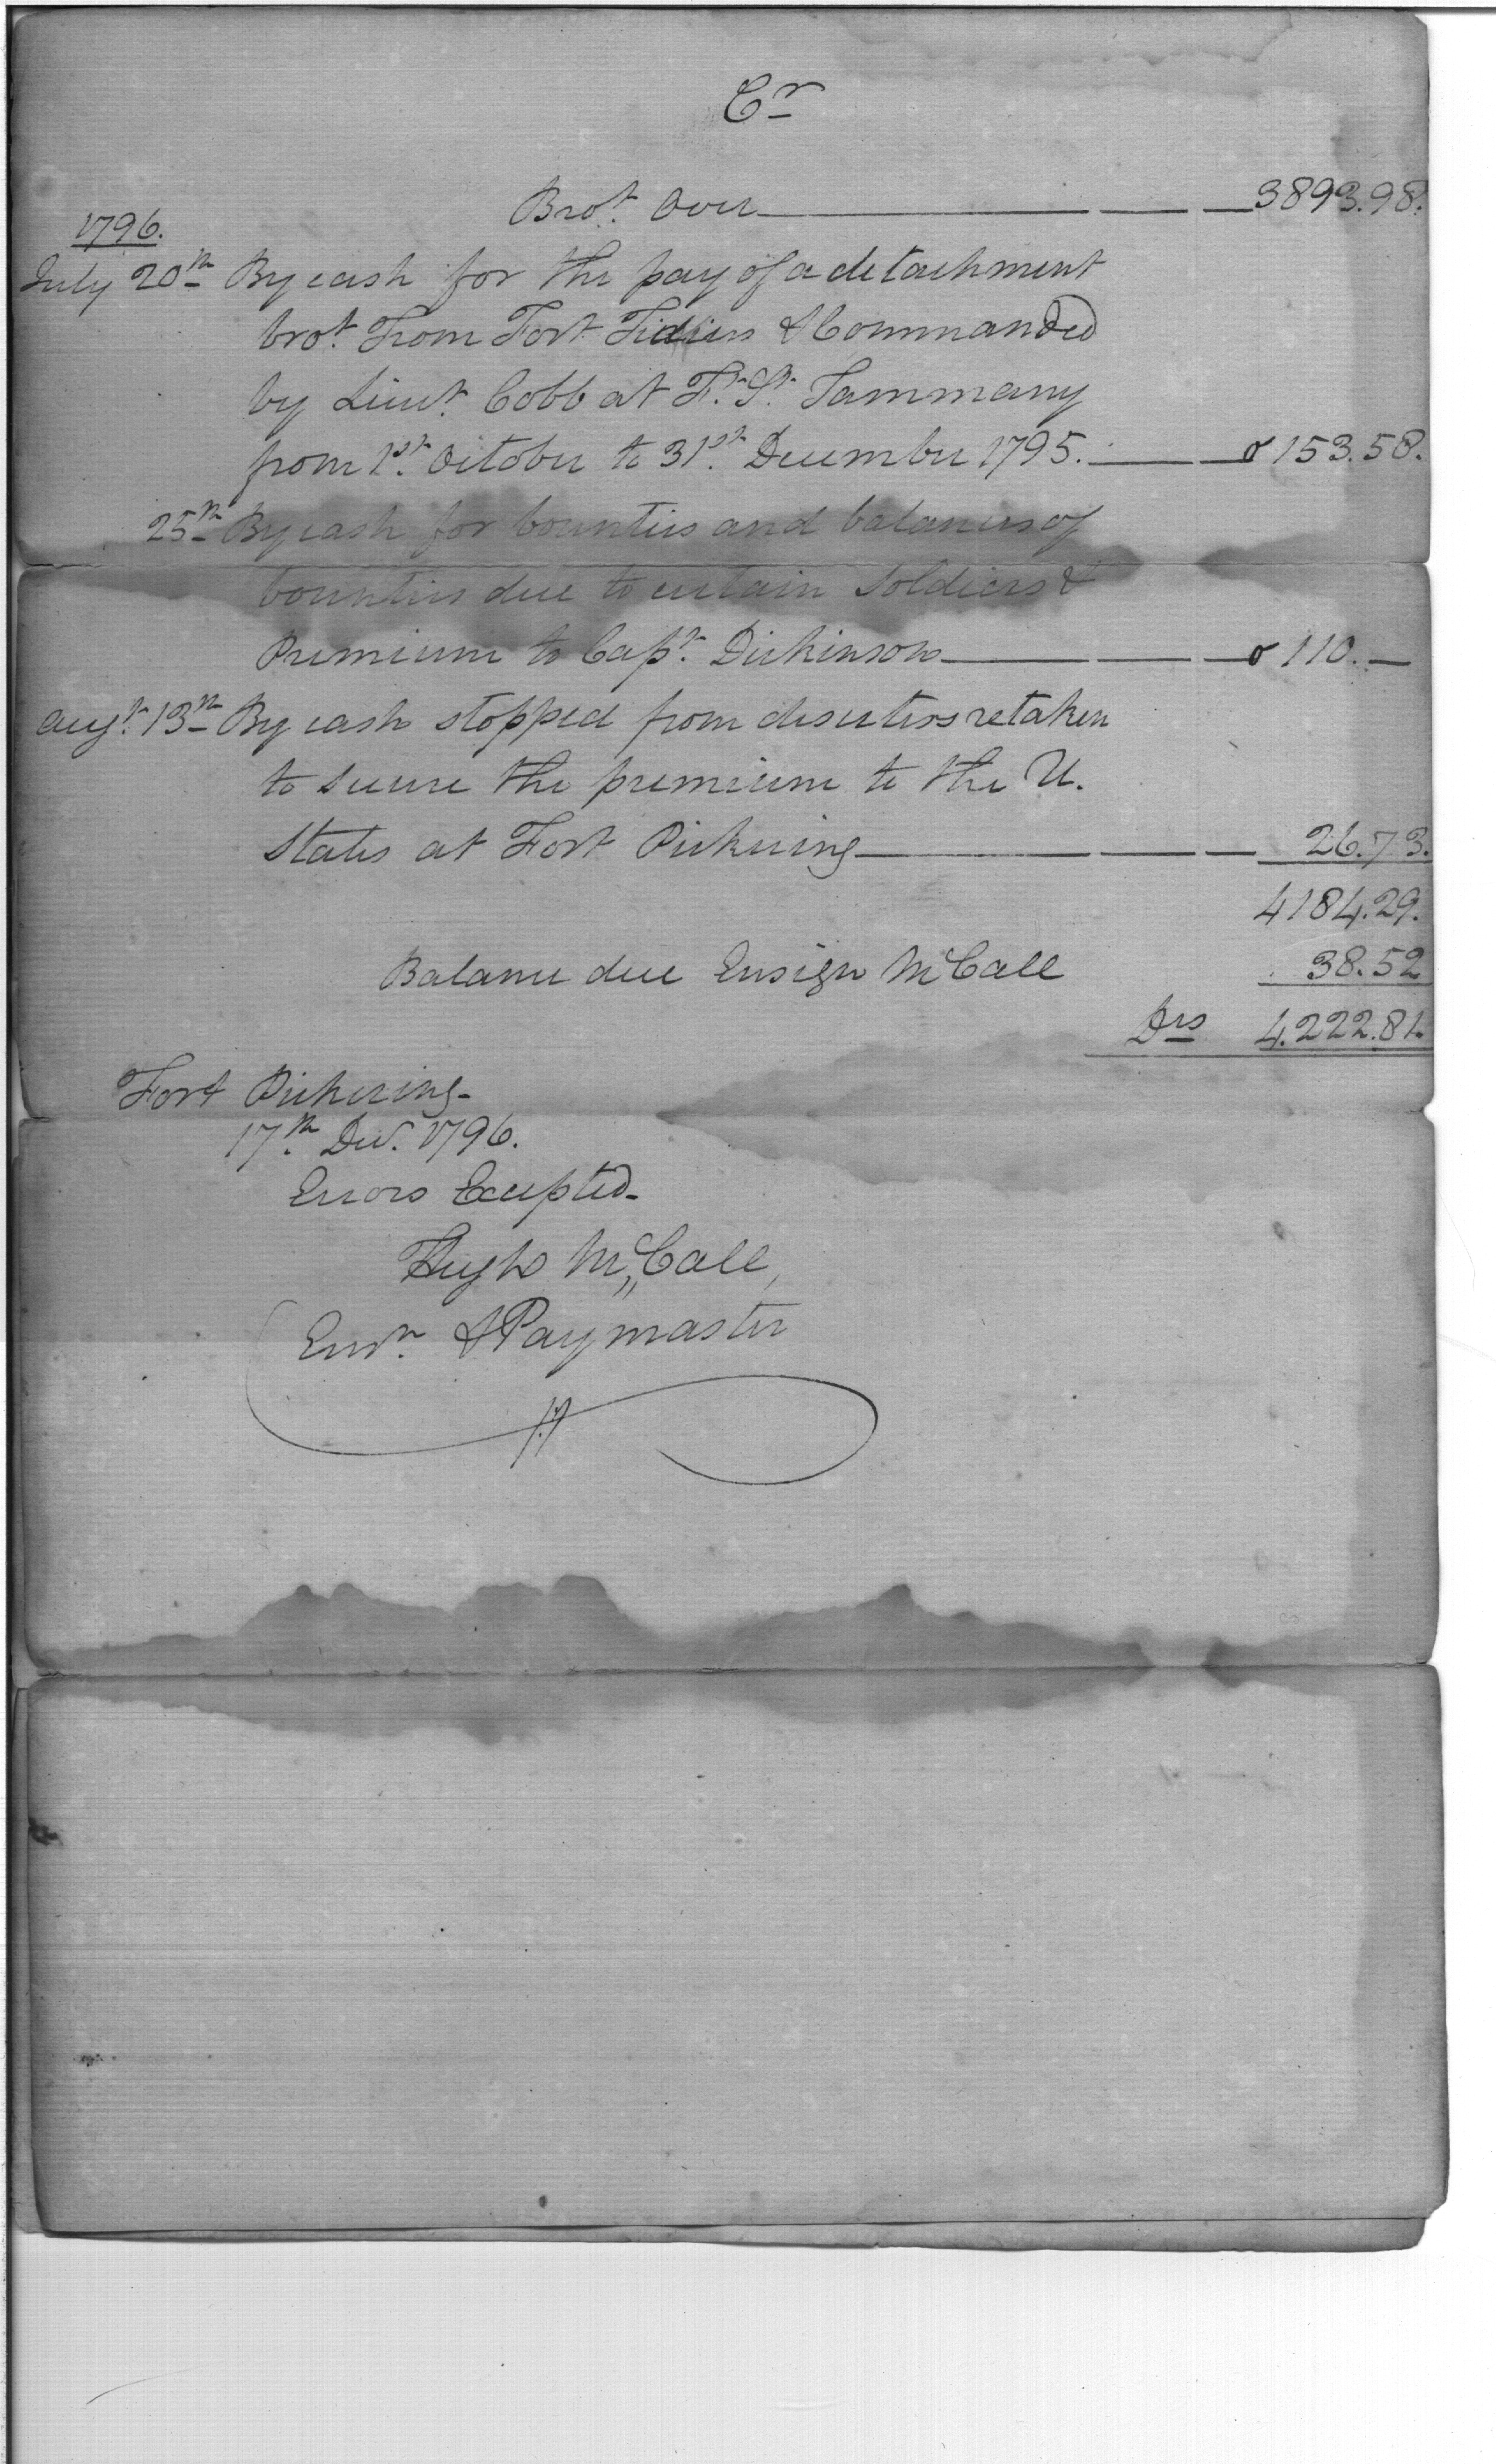 Cr
Brot. Over 3893.98.
1796.
July 20th By cash for the pay of a detachment
brot. From Fort Fidius & Commanded
by Lieut. Cobb at Ft. St. Tammany
from 1st. October to 31st. December 1795. 153.58.
25th By cash for bounties and balances of
bounties due to certain Soldiers &
Premium to Capt. Dickinson 110.—
Augt. 13th By cash stopped from deserters retaken
to secure the premium to the U.
States at Fort Pickering 26.73.
4184.29.
Balance due Ensign McCall 38.52
Drs 4.222.81.
Fort Pickering
17th. Dec. 1796.
Errors Excepted
Hugh McCall,
Ensn. & Paymaster